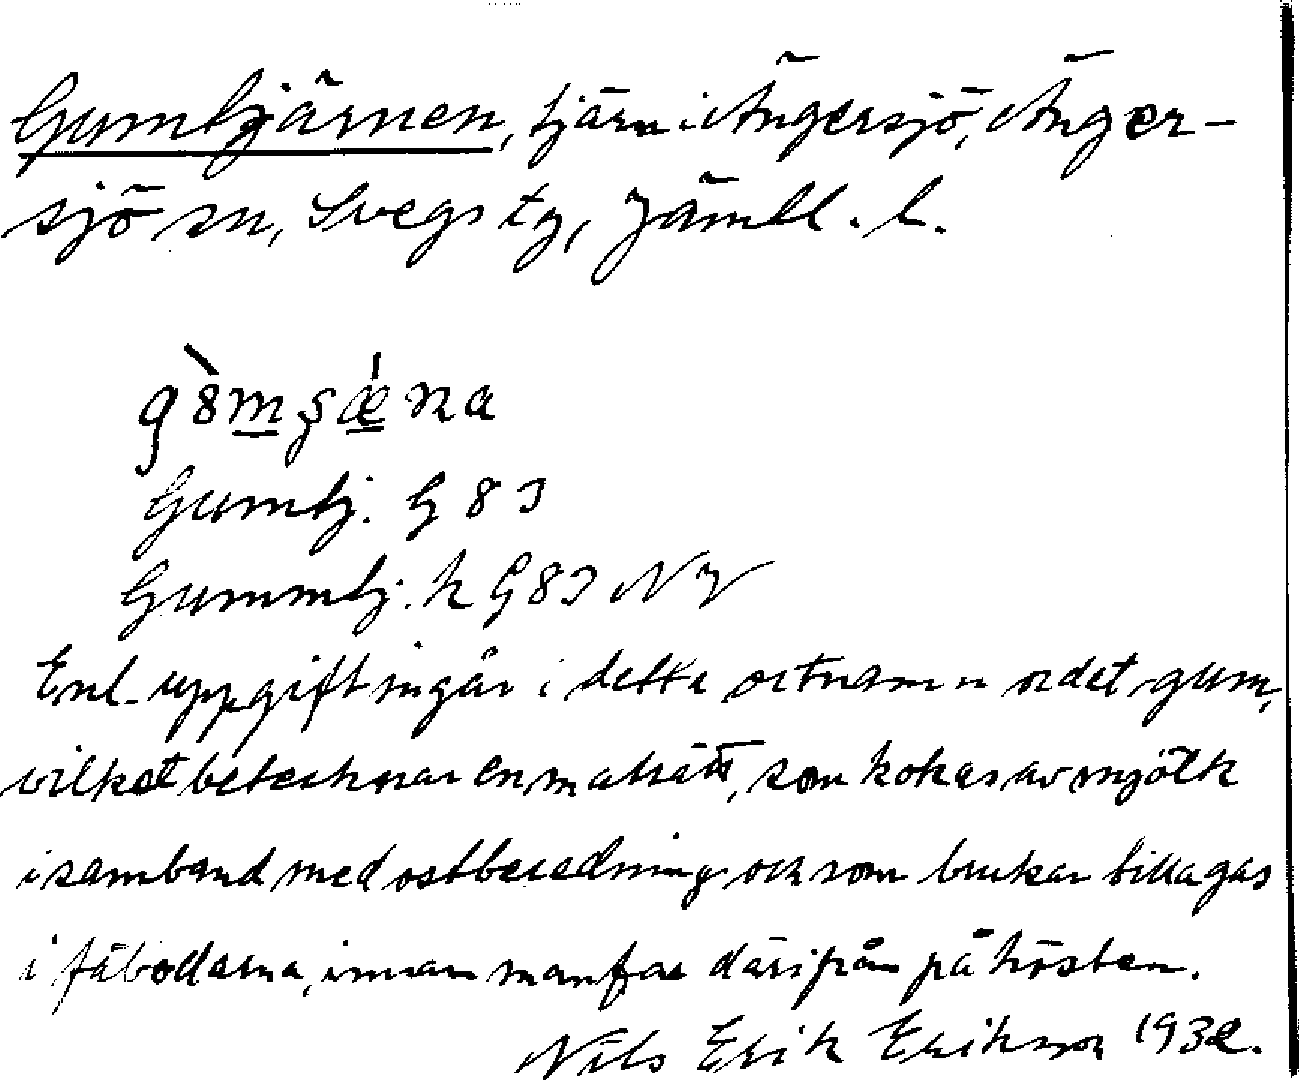 Gumtjärnen, tjärn i Ängersjö, Änger-
sjö sn, Svegs tg, Jämtl. l.
Gumtj. G 8 J
Gummtj. k G 8 J N V
Enl. uppgift ingår i detta ortnamn ordet gum,
vilket betecknar en maträtt, som kokas av mjölk
i samband med ostberedning och som brukar tillagas
i fäbodarna, innan man far därifrån på hösten.
Nils Erik Eriksson 1932.